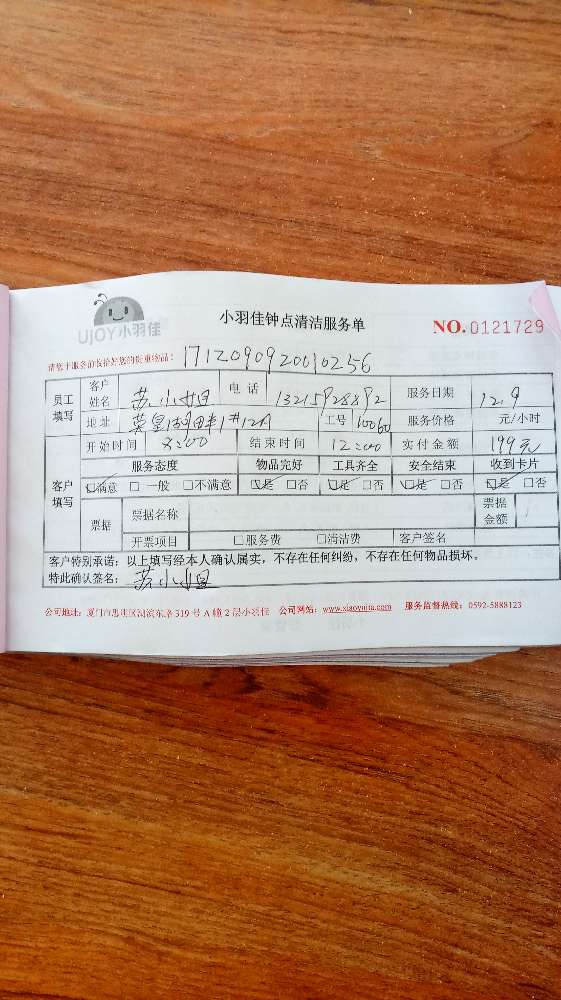 UJOY小羽佳
小羽佳钟点清洁服务单
NO. 0121729
请您于服务前收拾好您的贵重物品： 1712090920010256
员工填写 客户姓名 苏小姐 电话 13215928892 服务日期 12.9
地址 1#12A 工号 10060 服务价格 元/小时
客户填写 开始时间 8:00 结束时间 12:00 实付金额 199元
服务态度 物品完好 工具齐全 安全结束 收到卡片
☑满意 □一般 □不满意 ☑是 □否 ☑是 □否 ☑是 □否 ☑是 □否
票据 票据名称 票据金额
开票项目 □服务费 □清洁费 客户签名
客户特别承诺：以上填写经本人确认属实，不存在任何纠纷，不存在任何物品损坏。
特此确认签名： 苏小姐
公司地址：厦门市思明区湖滨东路 319 号 A 幢 2 层小羽佳 公司网站：www.xiaoyujia.com 服务监督热线：0592-5888123